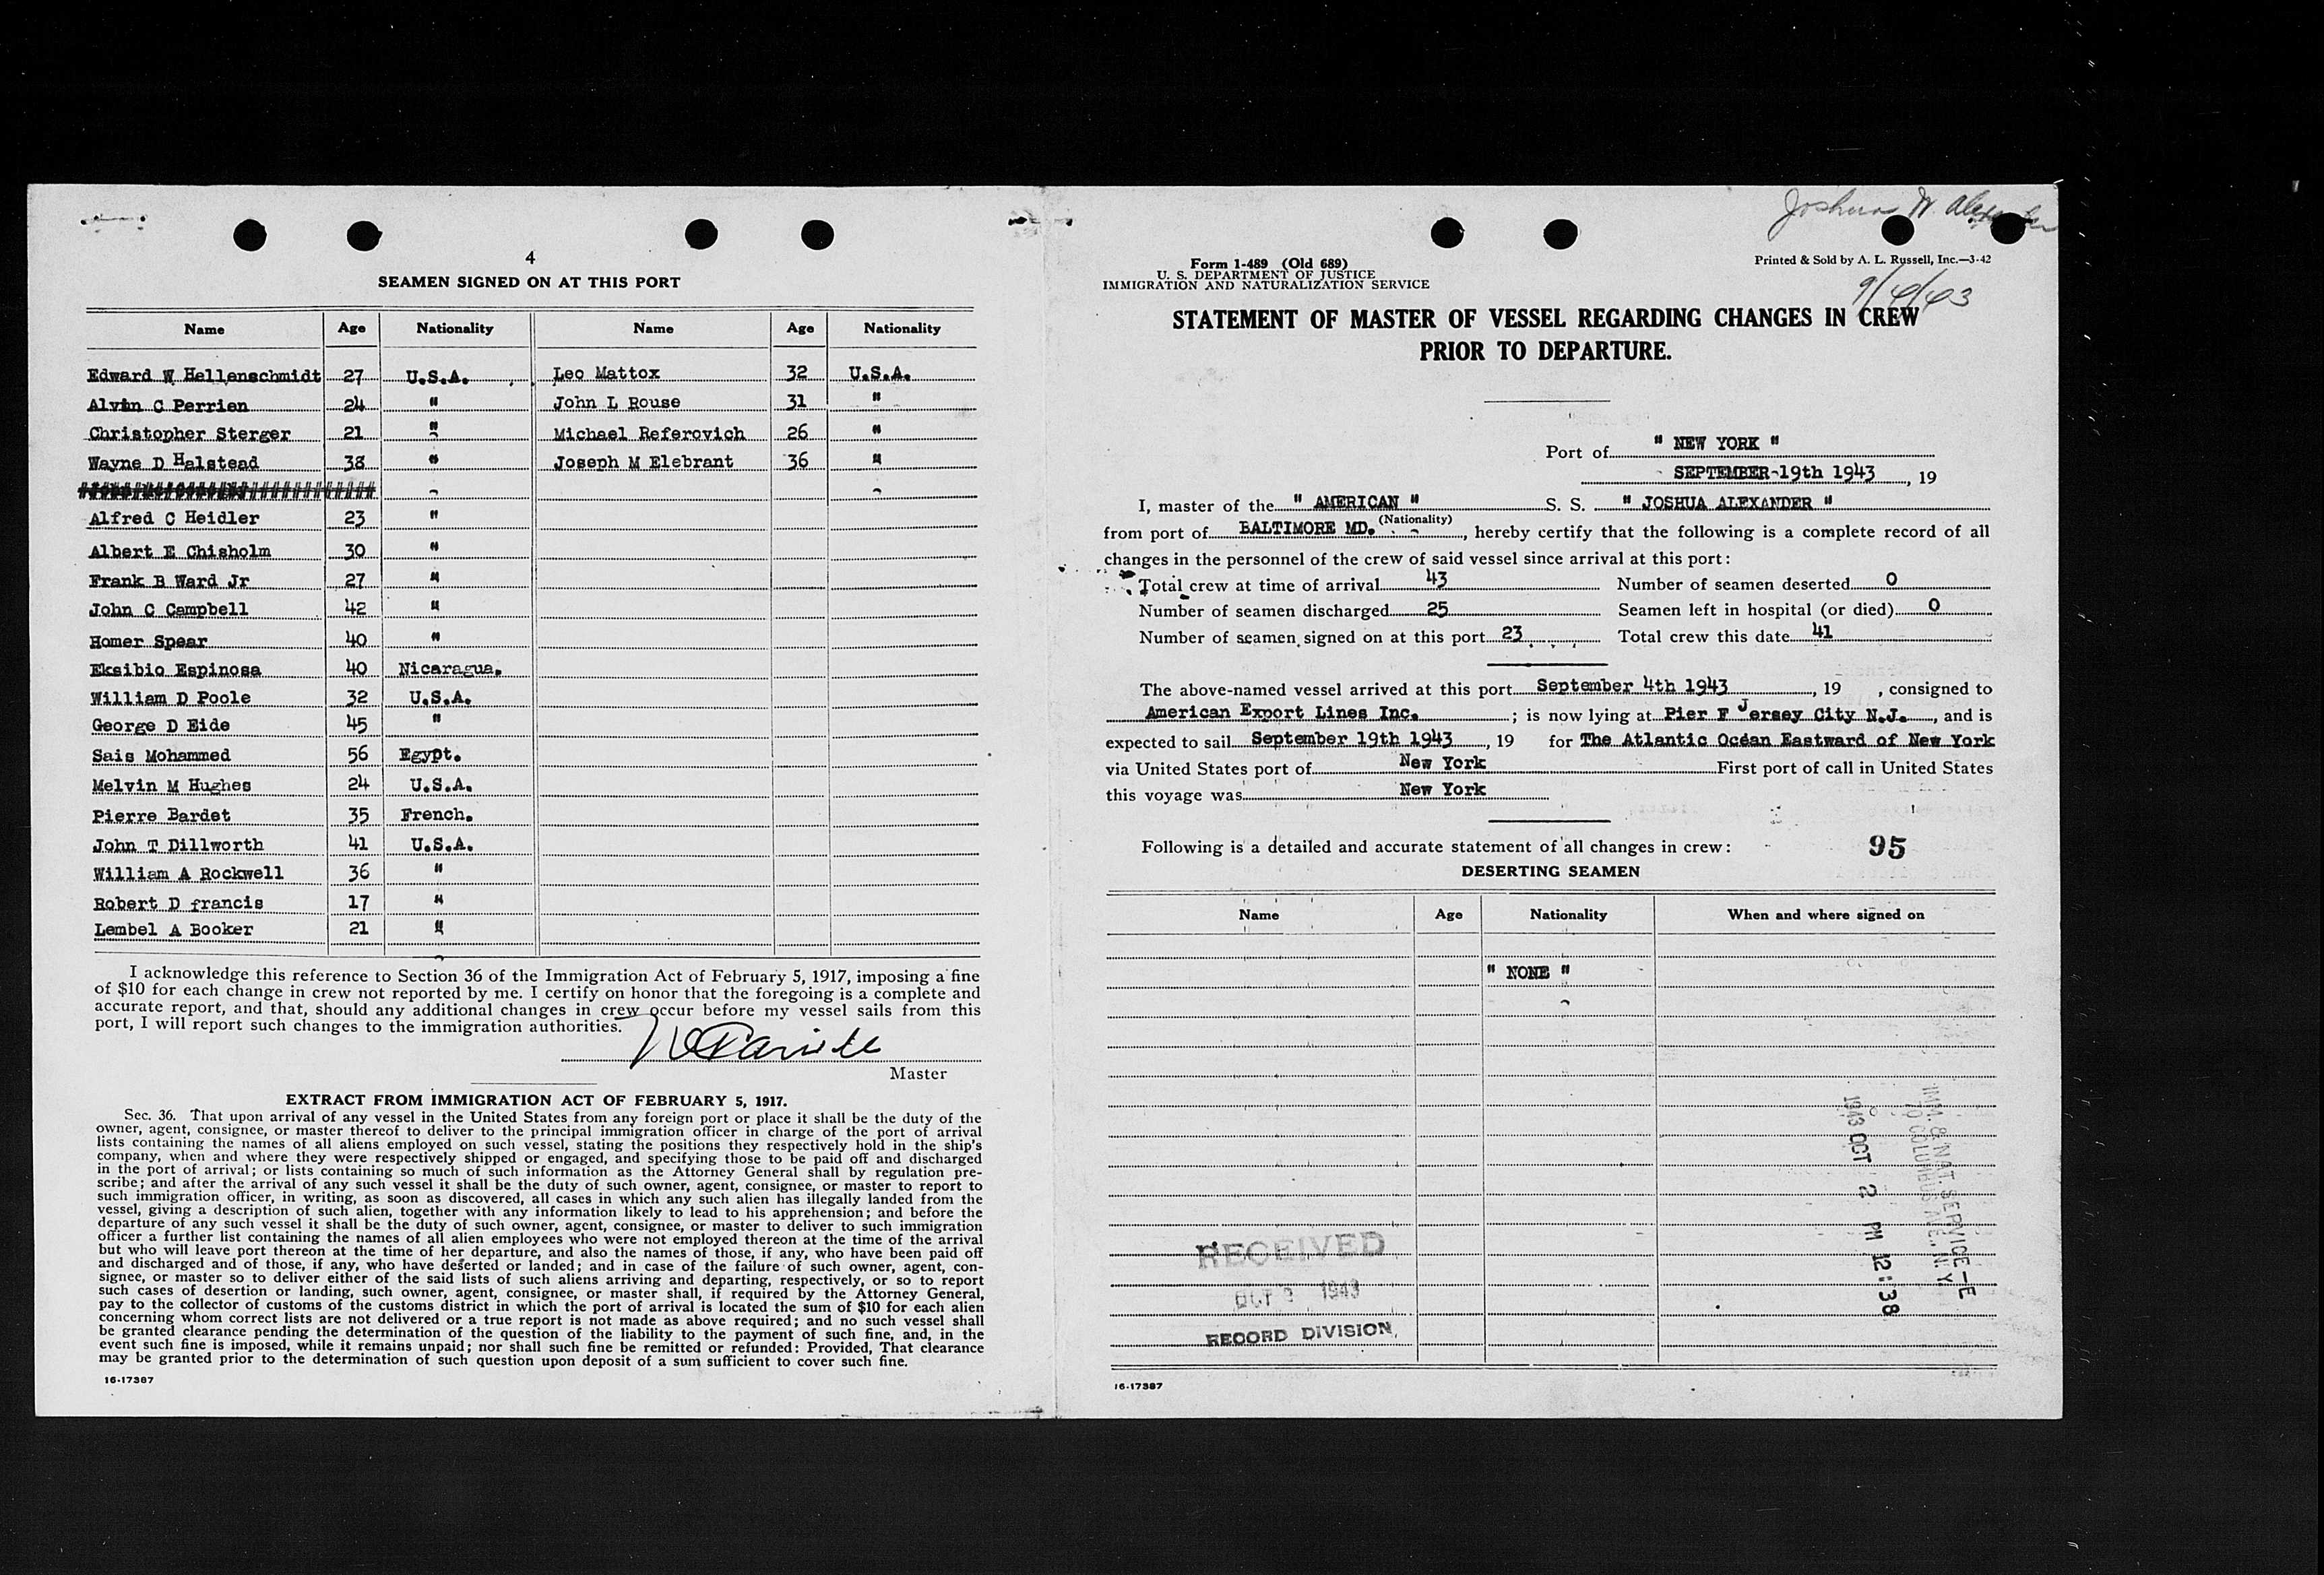 4
SEAMEN SIGNED ON AT THIS PORT
Name Age Nationality Name Age Nationality
Edward W Hellenschmidt 27 U.S.A. Leo Mattox 32 U.S.A.
Alvin C Perrien 24 " John L Rouse 31 "
Christopher Sterger 21 " Michael Referovich 26 "
Wayne D Halstead 38 " Joseph M Elebrant 36 "
Alfred C Heidler 23 "
Albert E Chisholm 30 "
Frank B Ward Jr 27 "
John C Campbell 42 "
Homer Spear 40 "
Eksibio Espinosa 40 Nicaragua.
William D Poole 32 U.S.A.
George D Eide 45 "
Sais Mohammed 56 Egypt.
Melvin M Hughes 24 U.S.A.
Pierre Bardet 35 French.
John T Dillworth 41 U.S.A.
William A Rockwell 36 "
Robert D francis 17 "
Lembel A Booker 21 "
I acknowledge this reference to Section 36 of the Immigration Act of February 5, 1917, imposing a fine
of $10 for each change in crew not reported by me. I certify on honor that the foregoing is a complete and
accurate report, and that, should any additional changes in crew occur before my vessel sails from this
port, I will report such changes to the immigration authorities.
Master
EXTRACT FROM IMMIGRATION ACT OF FEBRUARY 5, 1917.
Sec. 36. That upon arrival of any vessel in the United States from any foreign port or place it shall be the duty of the
owner, agent, consignee, or master thereof to deliver to the principal immigration officer in charge of the port of arrival
lists containing the names of all aliens employed on such vessel, stating the positions they respectively hold in the ship's
company, when and where they were respectively shipped or engaged, and specifying those to be paid off and discharged
in the port of arrival; or lists containing so much of such information as the Attorney General shall by regulation pre-
scribe; and after the arrival of any such vessel it shall be the duty of such owner, agent, consignee, or master to report to
such immigration officer, in writing, as soon as discovered, all cases in which any such alien has illegally landed from the
vessel, giving a description of such alien, together with any information likely to lead to his apprehension; and before the
departure of any such vessel it shall be the duty of such owner, agent, consignee, or master to deliver to such immigration
officer a further list containing the names of all alien employees who were not employed thereon at the time of the arrival
but who will leave port thereon at the time of her departure, and also the names of those, if any, who have been paid off
and discharged and of those, if any, who have deserted or landed; and in case of the failure of such owner, agent, con-
signee, or master so to deliver either of the said lists of such aliens arriving and departing, respectively, or so to report
such cases of desertion or landing, such owner, agent, consignee, or master shall, if required by the Attorney General,
pay to the collector of customs of the customs district in which the port of arrival is located the sum of $10 for each alien
concerning whom correct lists are not delivered or a true report is not made as above required; and no such vessel shall
be granted clearance pending the determination of the question of the liability to the payment of such fine, and, in the
event such fine is imposed, while it remains unpaid; nor shall such fine be remitted or refunded: Provided, That clearance
may be granted prior to the determination of such question upon deposit of a sum sufficient to cover such fine.
16-17387
Joshua W. Alexander
Form 1-489 (Old 689)
U. S. DEPARTMENT OF JUSTICE
IMMIGRATION AND NATURALIZATION SERVICE
Printed & Sold by A. L. Russell, Inc.—3-42
9/4/43
STATEMENT OF MASTER OF VESSEL REGARDING CHANGES IN CREW
PRIOR TO DEPARTURE.
Port of " NEW YORK "
SEPTEMBER-19th 1943, 19
I, master of the " AMERICAN " S. S. " JOSHUA ALEXANDER "
(Nationality)
from port of BALTIMORE MD., hereby certify that the following is a complete record of all
changes in the personnel of the crew of said vessel since arrival at this port:
Total crew at time of arrival 43 Number of seamen deserted 0
Number of seamen discharged 25 Seamen left in hospital (or died) 0
Number of seamen signed on at this port 23 Total crew this date 41
The above-named vessel arrived at this port September 4th 1943, 19 , consigned to
American Export Lines Inc. ; is now lying at Pier F Jersey City N.J., and is
expected to sail September 19th 1943, 19 for The Atlantic Ocean Eastward of New York
via United States port of New York First port of call in United States
this voyage was New York
Following is a detailed and accurate statement of all changes in crew:
95
DESERTING SEAMEN
Name Age Nationality When and where signed on
" NONE "
IMM. & NAT. SERVICE-E
70 COLUMBUS AVE., N.Y.
1943 OCT 2 PM 12:38
RECEIVED
OCT 1943
RECORD DIVISION
16-17387